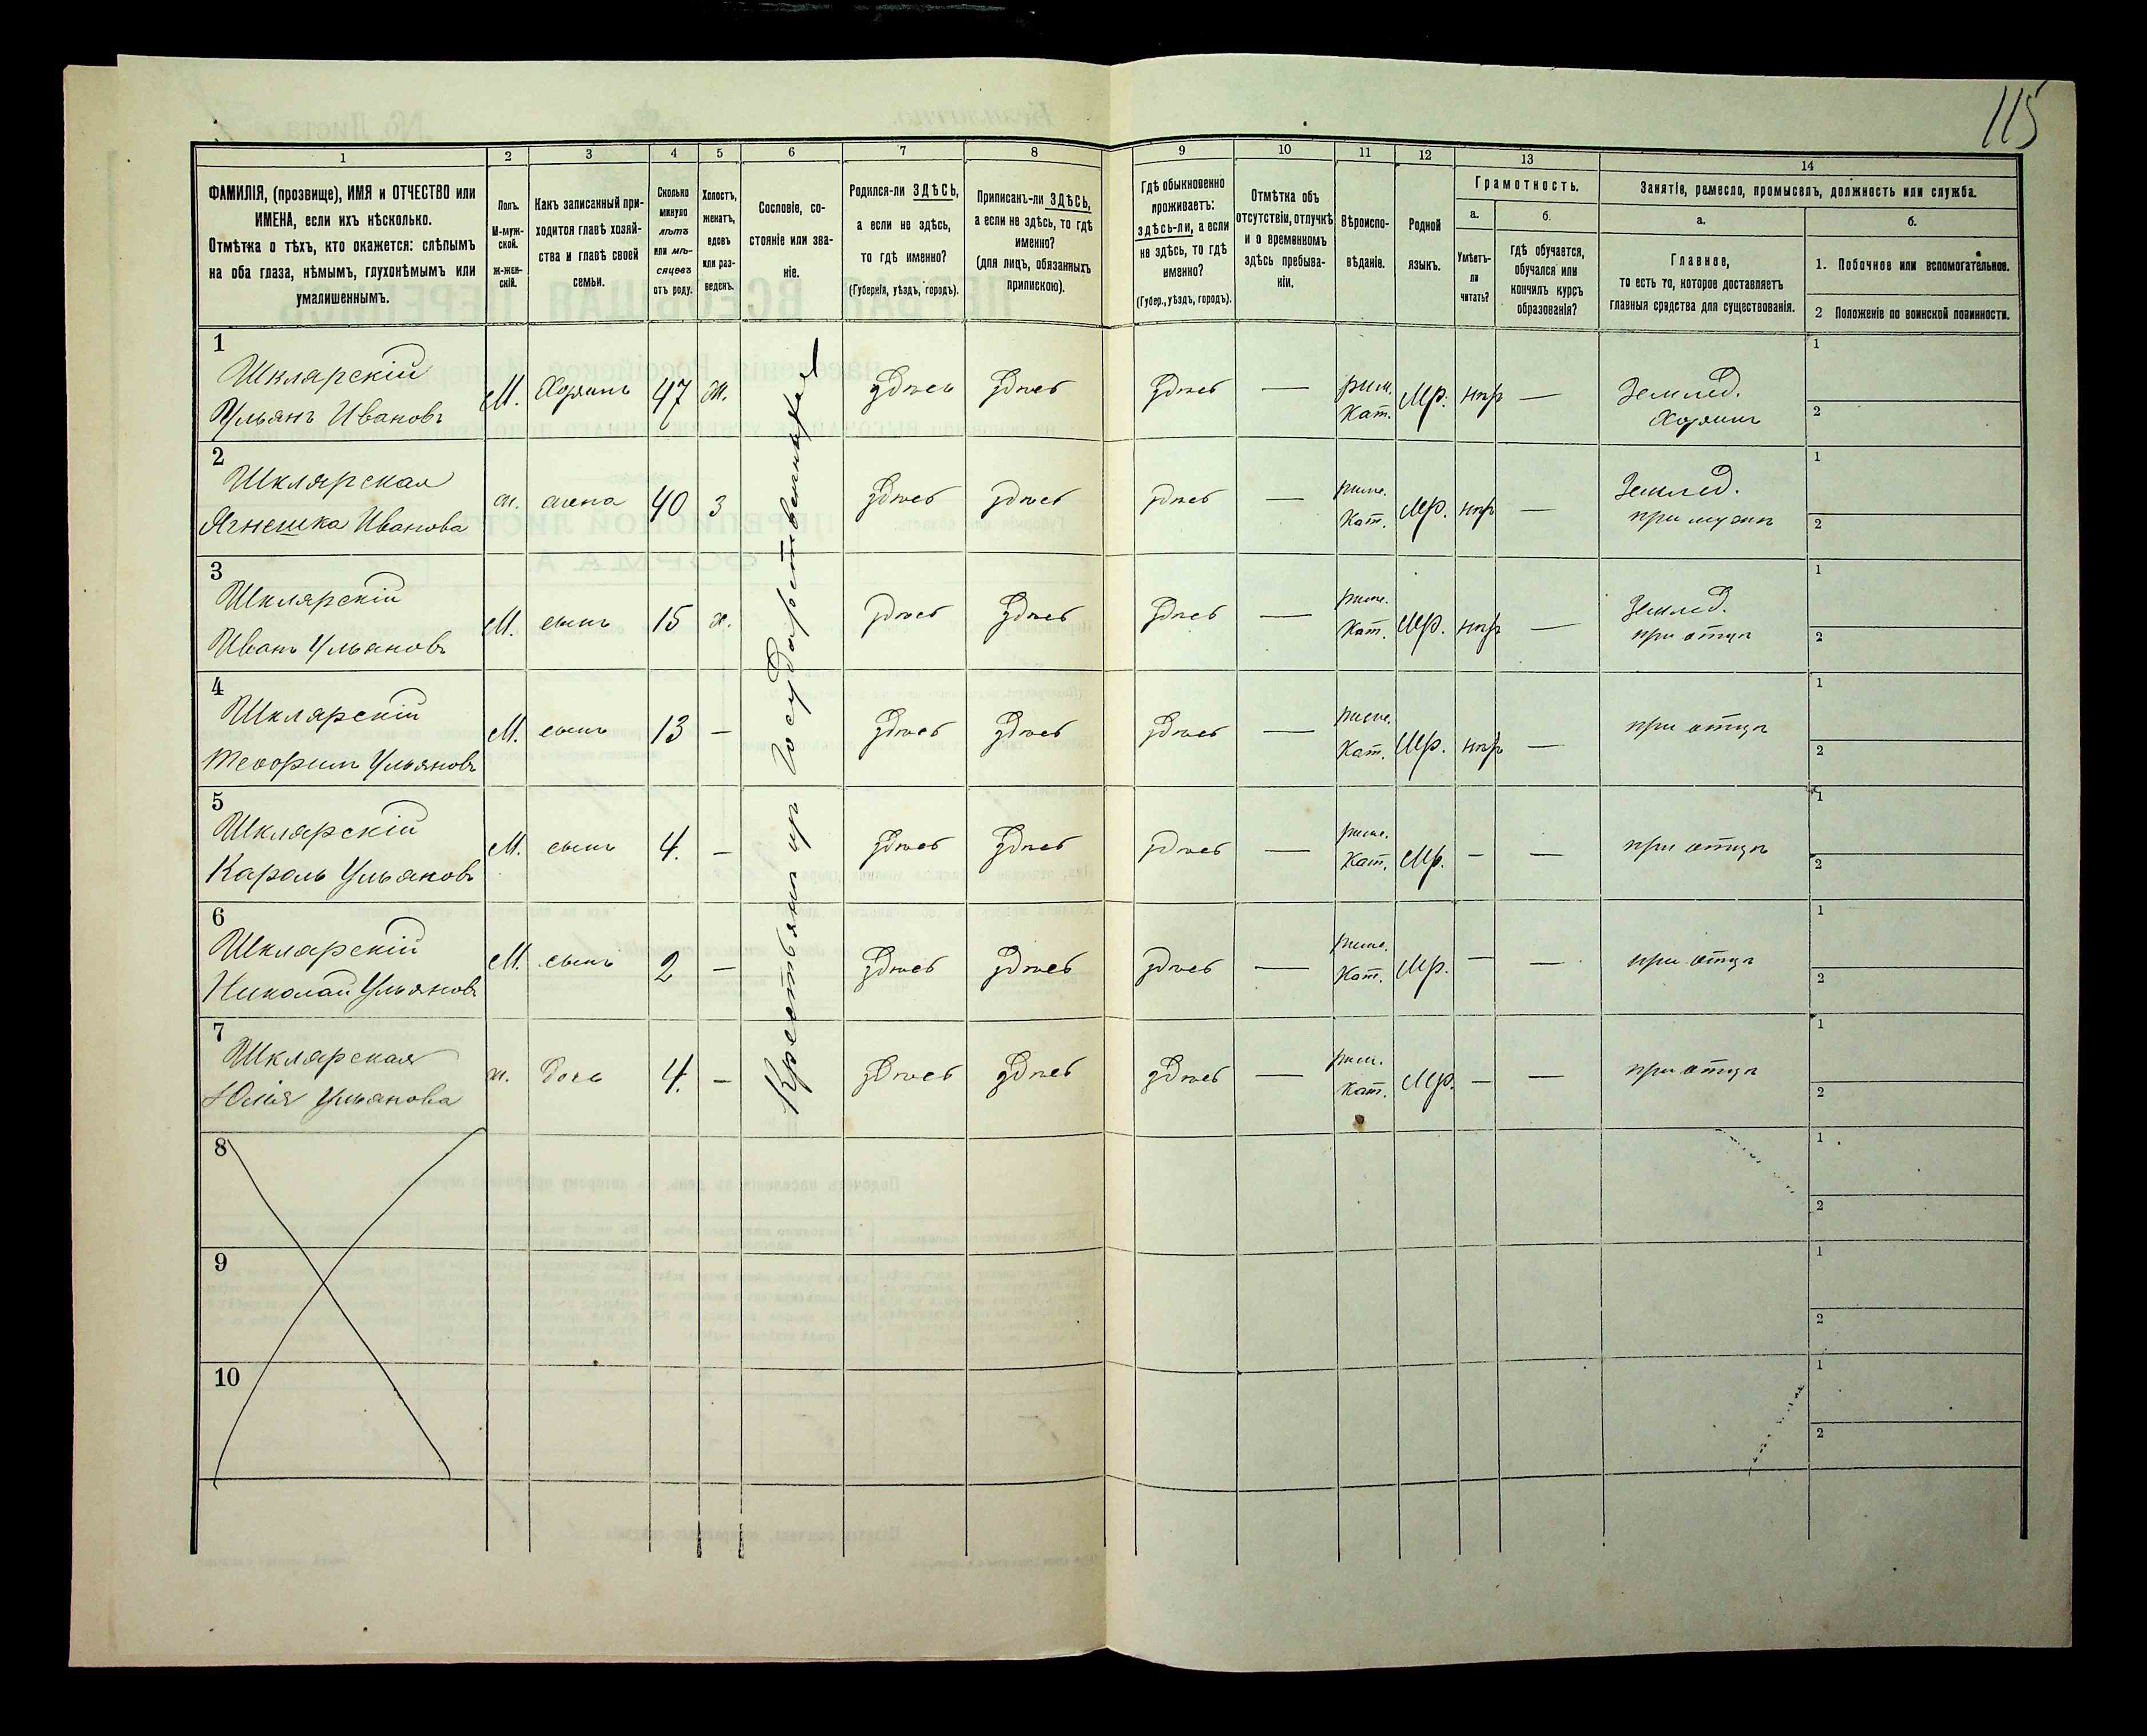 115
1
2
3
4
5
6
7
8
9
10
11
12
13
14
ФАМИЛІЯ, (прозвище), ИМЯ и ОТЧЕСТВО или
ИМЕНА, если ихъ нѣсколько.
Отмѣтка о тѣхъ, кто окажется: слѣпымъ
на оба глаза, нѣмымъ, глухонѣмымъ или
умалишеннымъ.
Полъ.
М-муж-
ской.
Ж-жен-
скій.
Какъ записанный при-
ходится главѣ хозяй-
ства и главѣ своей
семьи.
Сколько
минуло
лѣтъ
или мѣ-
сяцевъ
отъ роду.
Холостъ,
женатъ,
вдовъ
или раз-
веденъ.
Сословіе, со-
стояніе или зва-
ніе.
Родился-ли ЗДѢСЬ,
а если не здѣсь,
то гдѣ именно?
(Губернія, уѣздъ, городъ).
Приписанъ-ли ЗДѢСЬ,
а если не здѣсь, то гдѣ
именно?
(для лицъ, обязанныхъ
припискою).
Гдѣ обыкновенно
проживаетъ:
здѣсь-ли, а если
не здѣсь, то гдѣ
именно?
(Губер., уѣздъ, городъ).
Отмѣтка объ
отсутствіи, отлучкѣ
и о временномъ
здѣсь пребыва-
ніи.
Вѣроиспо-
вѣданіе.
Родной
языкъ.
Грамотность.
а.
б.
Умѣетъ-
ли
читать?
гдѣ обучается,
обучался или
кончилъ курсъ
образованія?
Занятіе, ремесло, промыселъ, должность или служба.
а.
б.
Главное,
то есть то, которое доставляетъ
главныя средства для существованія.
1. Побочное или вспомогательное.
2 Положеніе по воинской повинности.
Крестьянинъ изъ Государственныхъ
1
Шклярскій
Ульянъ Ивановъ
М. Хозяинъ 47 ж. здѣсь здѣсь здѣсь — рим. Кат. Мр. нѣт —
Землед.
Хозяинъ
1
2
2
Шклярская
Ягнешка Иванова
ж. жена 40 з здѣсь здѣсь здѣсь — рим. Кат. Мр. нѣт —
Землед.
при мужѣ
1
2
3
Шклярскій
Иванъ Ульяновъ
М. сынъ 15 х. здѣсь здѣсь здѣсь — рим. Кат. Мр. нѣт —
Землед.
при отцѣ
1
2
4
Шклярскій
Теофилъ Ульяновъ
М. сынъ 13 — здѣсь здѣсь здѣсь — рим. Кат. Мр. нѣт —
при отцѣ
1
2
5
Шклярскій
Кароль Ульяновъ
М. сынъ 4. — здѣсь здѣсь здѣсь — рим. Кат. Мр. — —
при отцѣ
1
2
6
Шклярскій
Николай Ульяновъ
М. сынъ 2 — здѣсь здѣсь здѣсь — рим. Кат. Мр. — —
при отцѣ
1
2
7
Шклярская
Юлія Ульянова
ж. дочь 4. — здѣсь здѣсь здѣсь — рим. Кат. Мр. — —
при отцѣ
1
2
8
1
2
9
1
2
10
1
2